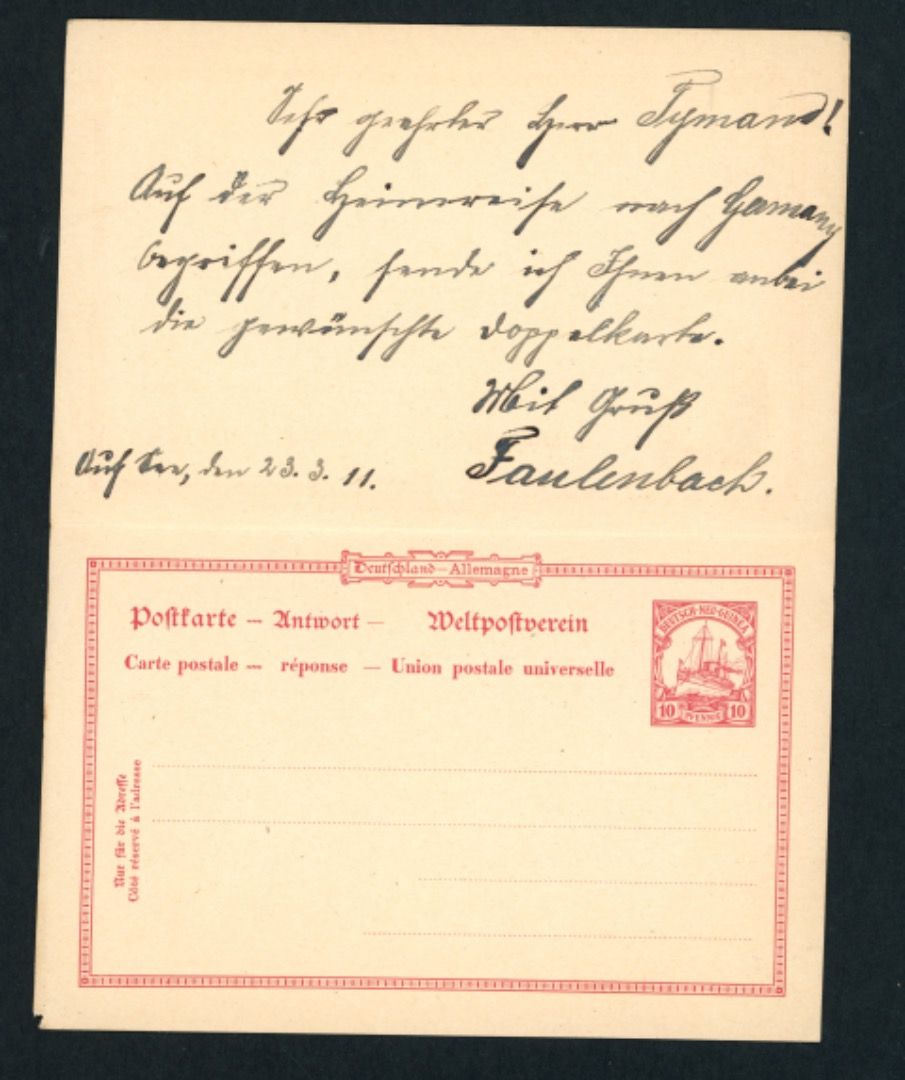 Sehr geehrter Herr Tymand!
Auf der Heimreise nach Germany
begriffen, sende ich Ihnen anbei
die gewünschte Doppelkarte.
Mit Gruß
Auf See, den 23.3.11. Faulenbach.
Deutschland – Allemagne
Postkarte — Antwort — Weltpostverein
Carte postale — réponse — Union postale universelle
DEUTSCH-NEU-GUINEA
10 PFENNIG 10
Nur für die Adresse
Côté réservé à l'adresse